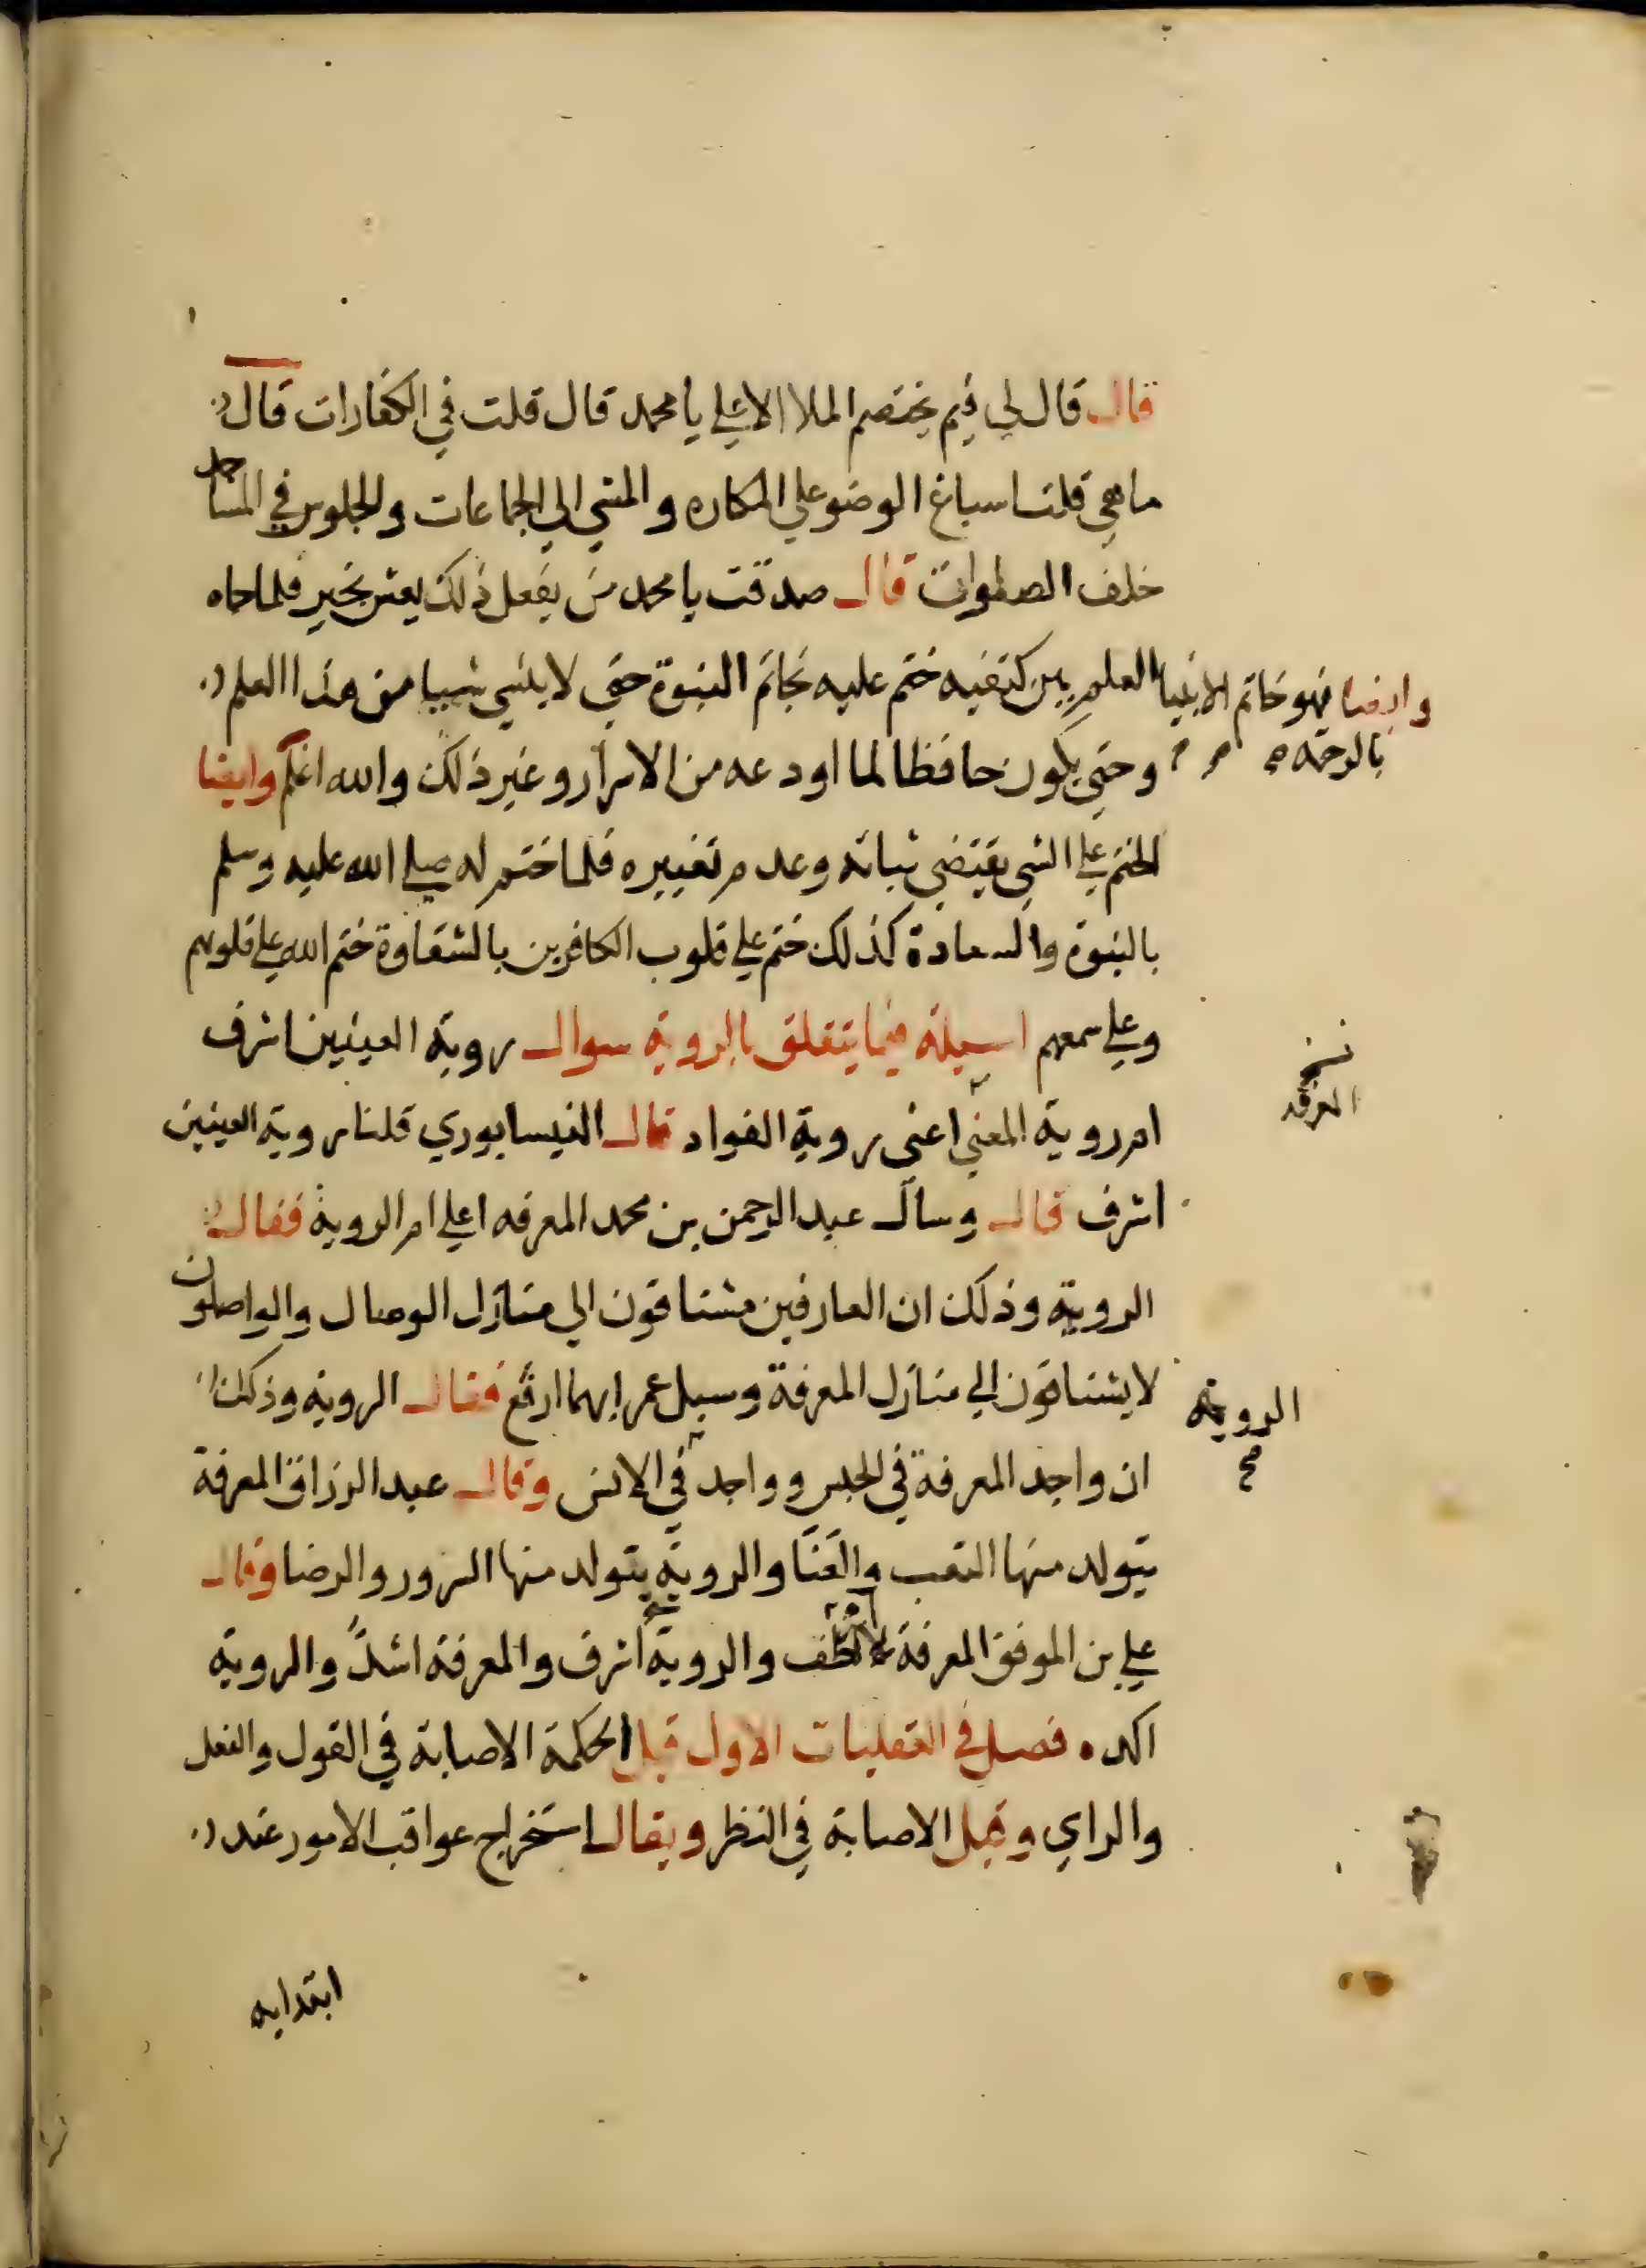 قال قال لي فيم يختصم الملا الاعلي يا محمد قال قلت في الكفارات قال
ما هي قلت اسباغ الوضو علي المكاره والمشي الي الجماعات والجلوس في المساجد
خلف الصلوات قال صدقت يا محمد من يفعل ذلك يعش بخير فلما حماه
العلم بين كتفيه ختم عليه بخاتم النبوة حتي لا ينسي شييا من هذا العلم
وايضا فهو خاتم الانبيا
بالرحمه
وحتي يكون حافظا لما اودعه من الاسرار وغير ذلك والله اعلم وايضا
الختم علي الشي يقتضي ثباته وعدم تغييره فلما ختم له صلي الله عليه وسلم
بالنبوة والسعادة كذلك ختم علي قلوب الكافرين بالشقاوة ختم الله علي قلوبهم
وعلي سمعهم اسيلة فيما يتعلق بالروية سوال روية العينين اشرف
ام روية المعني اعني روية الفواد قال النيسابوري قلنا روية العينين
نسخ
المعرفه
اشرف قال وسال عبد الرحمن بن محمد المعرفه اعلي ام الروية فقال
الروية وذلك ان العارفين مشتاقون الي منازل الوصال والواصلون
لا يشتاقون الي منازل المعرفة وسيل عمر ايهما ارفع فقال الروية وذلك
ان واجد المعرفة في الحبس وواجد في الانس وقال عبد الرزاق المعرفة
الروية
صح
يتولد منها التعب والعنا والروية يتولد منها السرور والرضا وقال
علي بن الموفق المعرفة الطف والروية اشرف والمعرفة اشد والروية
اكد فصل في العقليات الاول قيل الحكمة الاصابة في القول والفعل
والراي وقيل الاصابة في النظر ويقال استخراج عواقب الامور عند
ابتدايه